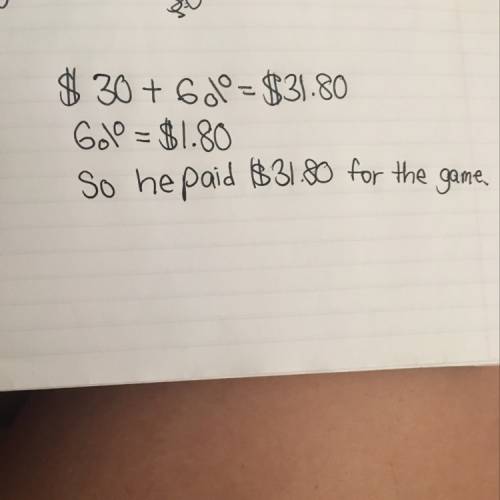 $ 30 + 6% = $31.80
6% = $1.80
So he paid $31.80 for the game.